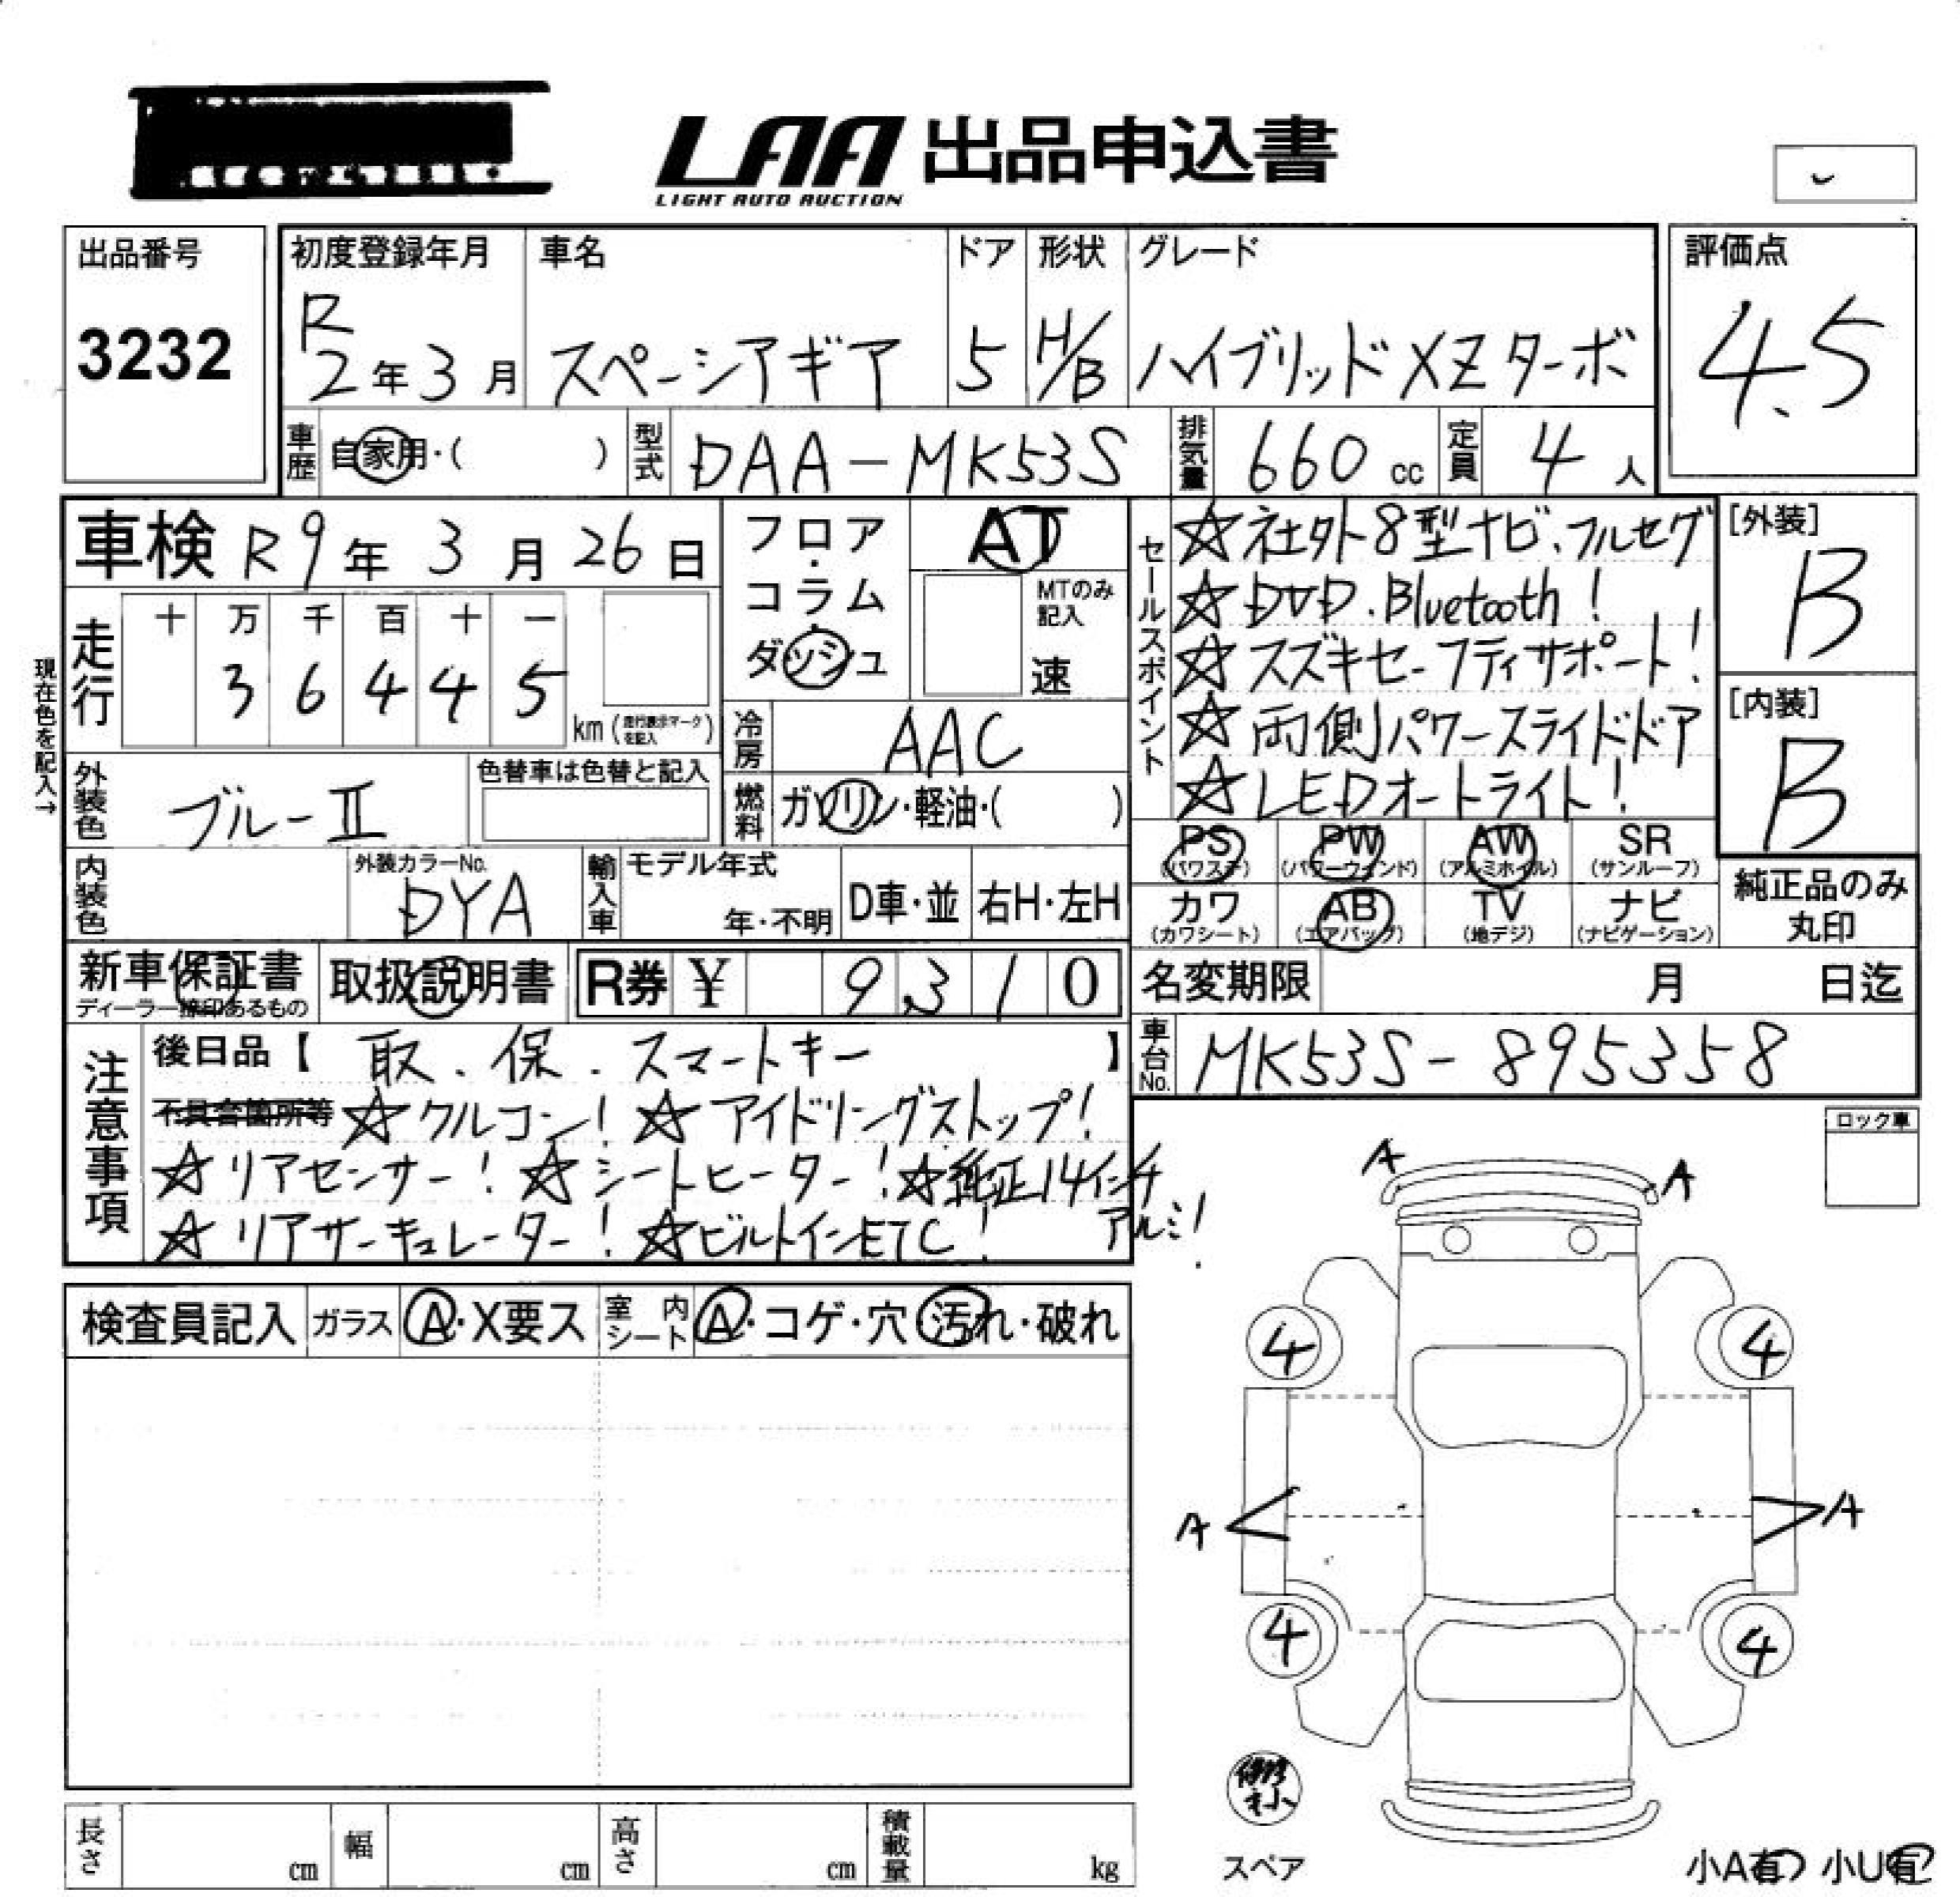 LAA 出品申込書
LIGHT AUTO AUCTION
出品番号
3232
初度登録年月
R
2年3月
車名
スペーシアギア
ドア
5
形状
H/B
グレード
ハイブリッドXZターボ
評価点
4.5
車歴 自家用・( )
型式 DAA-MK53S
排気量 660 cc
定員 4 人
車検 R9年3月26日
フロア・コラム・ダッシュ
AT
MTのみ記入
速
セールスポイント
☆社外8型ナビ、フルセグ
☆DVD.Bluetooth!
☆スズキセーフティサポート!
☆両側パワースライドドア
☆LEDオートライト!
[外装]
B
[内装]
B
現在色を記入→
走行
十 万 千 百 十 一
3 6 4 4 5
km (走行表示マークを記入)
冷房 AAC
外装色 ブルーII
色替車は色替と記入
燃料 ガソリン・軽油・( )
PS (パワステ) PW (パワーウィンド) AW (アルミホイル) SR (サンルーフ)
カワ (カワシート) AB (エアバッグ) TV (地デジ) ナビ (ナビゲーション)
純正品のみ丸印
内装色
外装カラーNo.
DYA
輸入車
モデル年式
年・不明
D車・並
右H・左H
新車保証書
ディーラー捺印あるもの
取扱説明書
R券 ¥ 9,310
名変期限 月 日迄
車台No. MK53S-895358
注意事項
後日品【 取.保.スマートキー 】
不具合箇所等 ☆クルコン! ☆アイドリングストップ!
☆リアセンサー! ☆シートヒーター! ☆純正14インチアルミ!
☆リアサーキュレーター! ☆ビルトインETC!
ロック車
検査員記入 ガラス A・X要ス 室内シート A・コゲ・穴・汚れ・破れ
A A
4 4
A A
4 4
スペア
小A有 小U有
長さ cm 幅 cm 高さ cm 積載量 kg